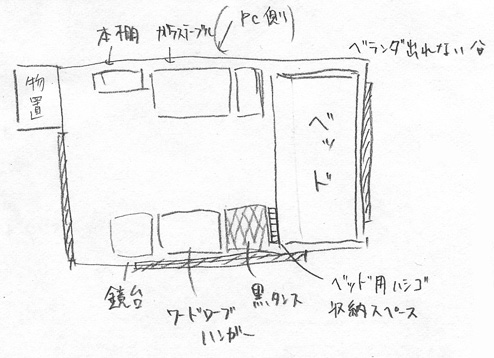 本棚
ガラステーブル
(PC側)
ベランダ出れない谷
物置
ベッド
鏡台
ワードローブ
ハンガー
黒タンス
ベッド用ハシゴ
収納スペース